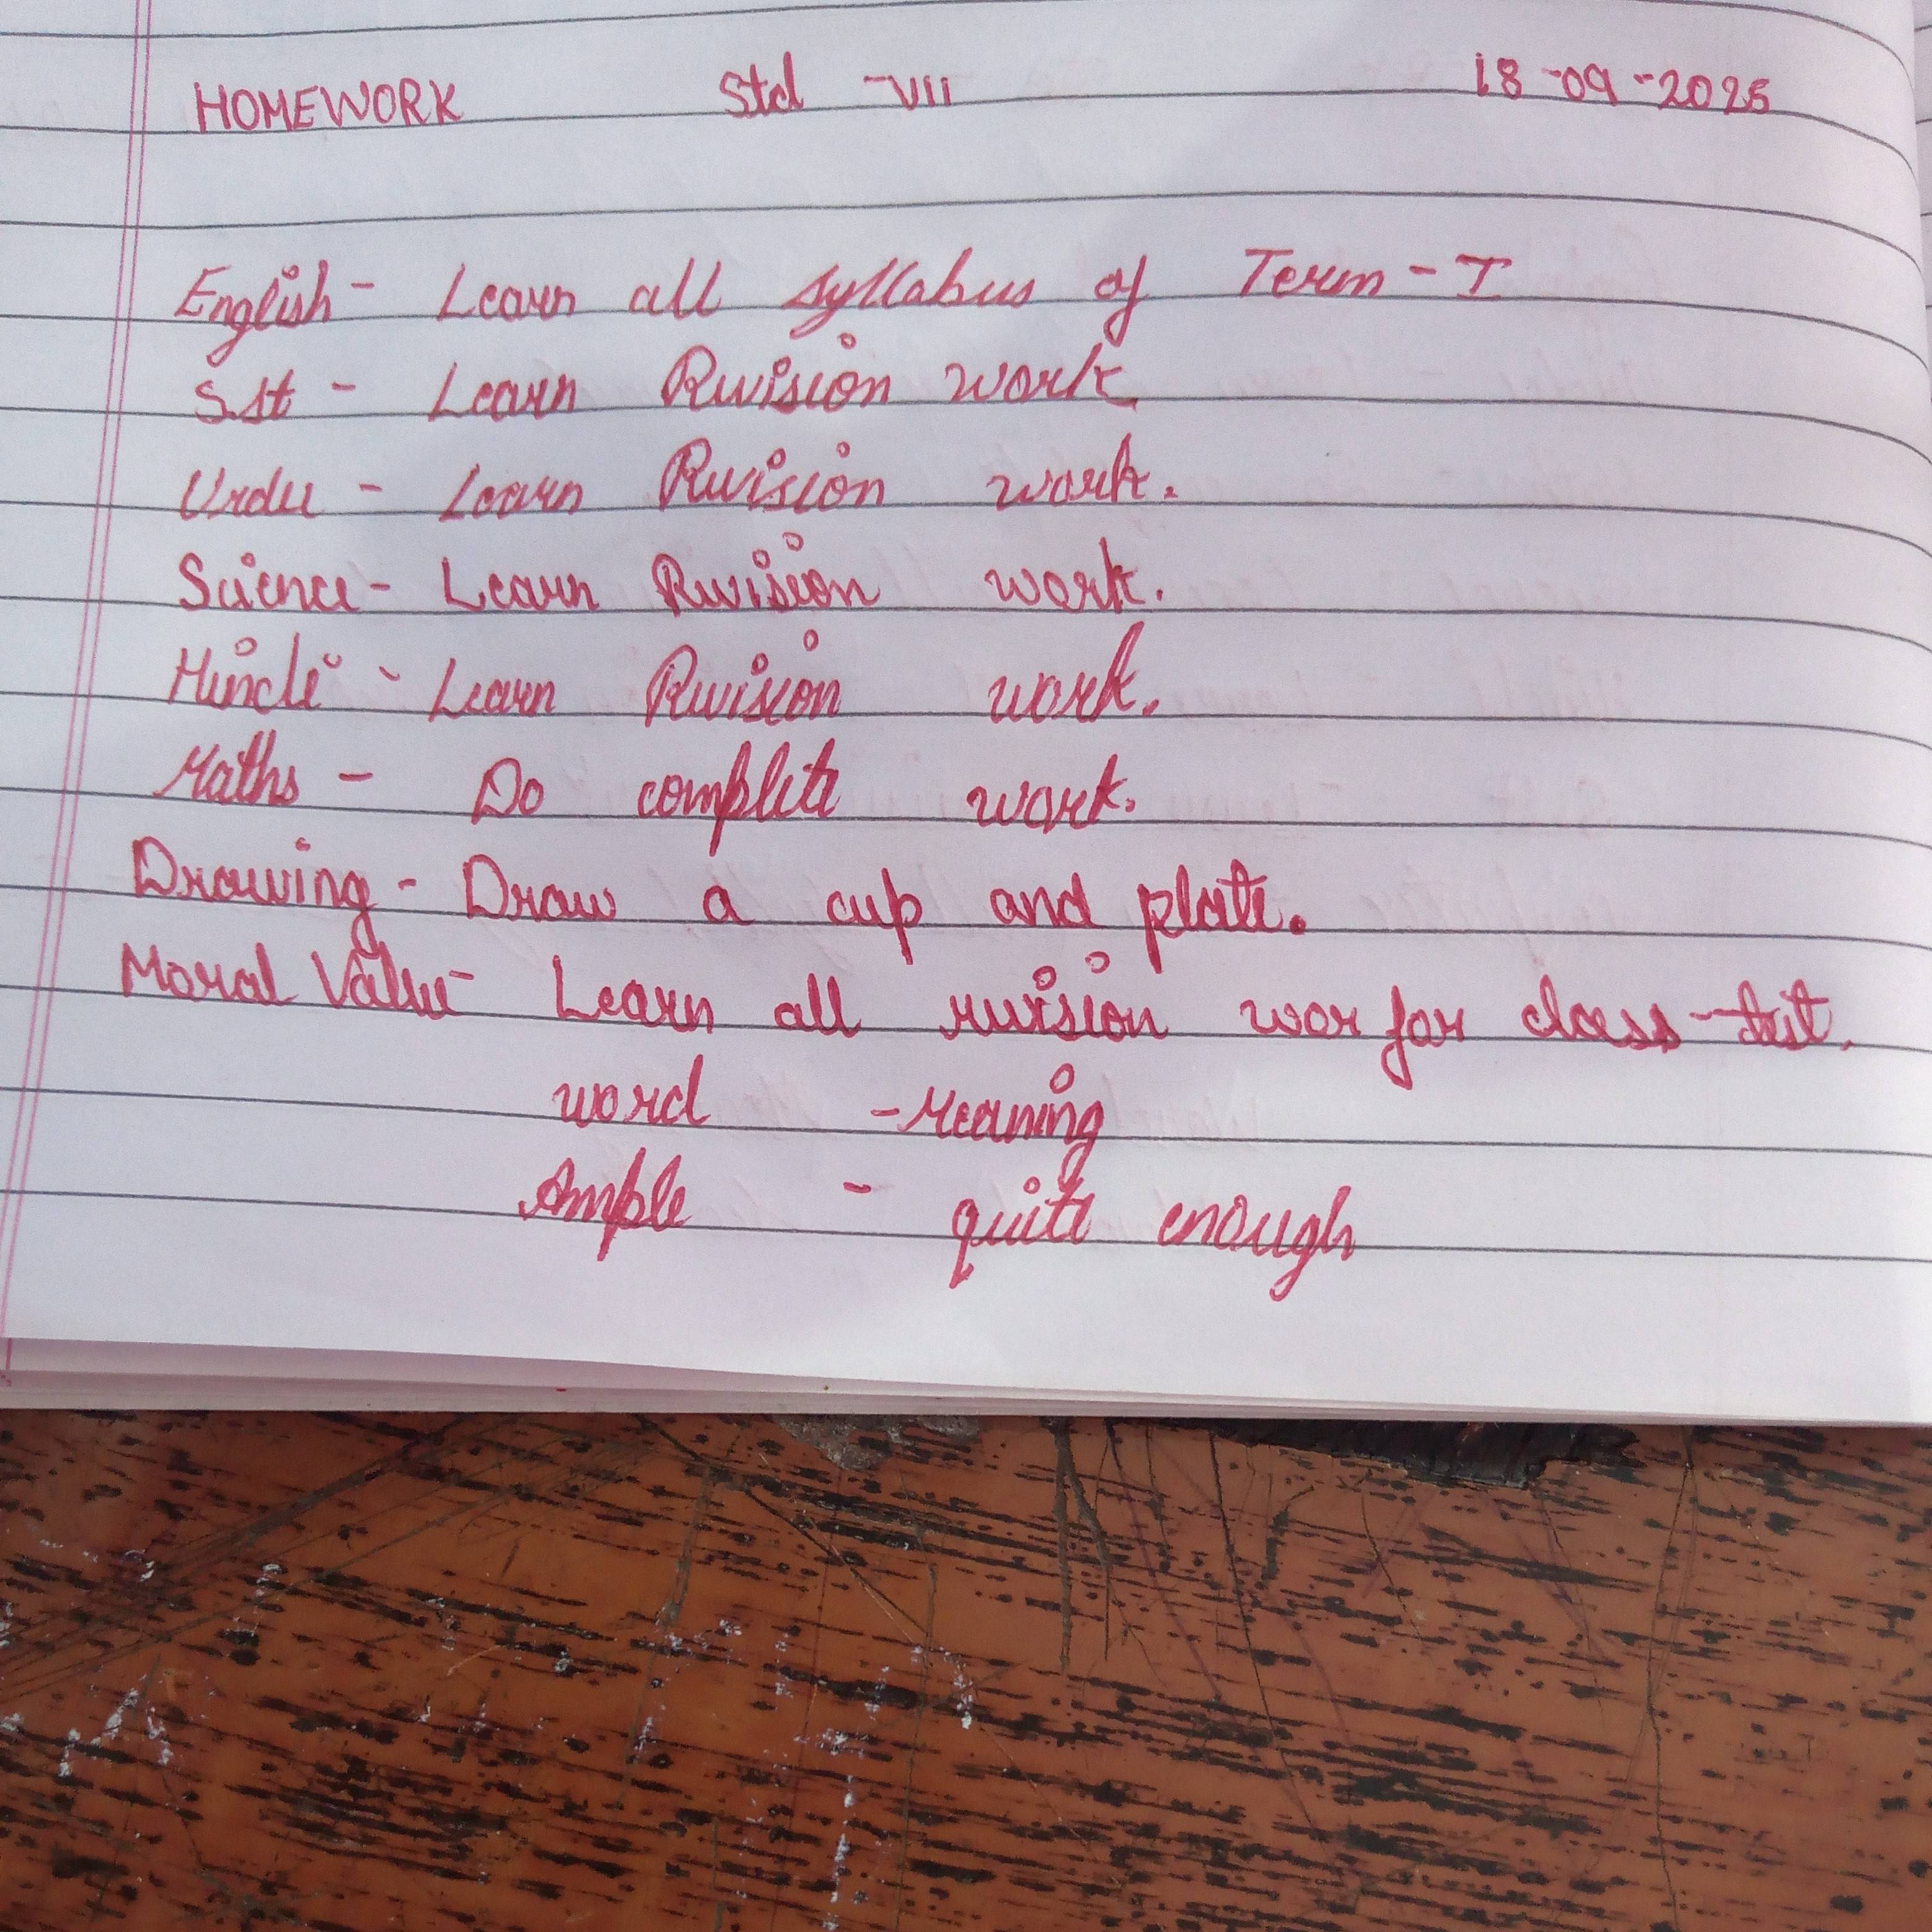 HOMEWORK Std -VII 18-09-2025
English - Learn all syllabus of Term - I
S.st - Learn Revision work
Urdu - Learn Revision work.
Science - Learn Revision work.
Hindi - Learn Revision work.
Maths - Do complete work.
Drawing - Draw a cup and plate.
Moral Value - Learn all revision wor for class-test.
word - Meaning
Ample - quite enough